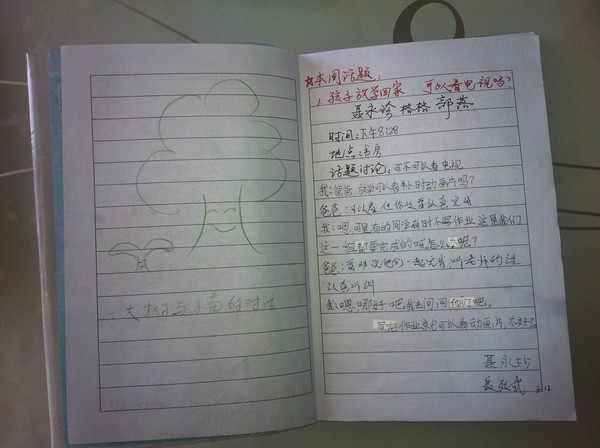 大树与小苗的对话
☆本周话题:
1、孩子放学回家,可以看电视吗?
聂永珍 格格 部落
时间:下午8:28
地点:书房
话题讨论:可不可以看电视
我:爸爸,放学可以看 时动画片吗?
爸爸:可以看,但作业要认真完成
我:嗯,可是有的同学有时不写作业,这是我们
这一组都要完成的 怎么办呢?
爸爸: 他们一起完成,听老师的话
认真听讲
我:嗯,哪好吧我去问问他们吧。
写完作业就可以看动画片,太好了
聂永珍
3.12